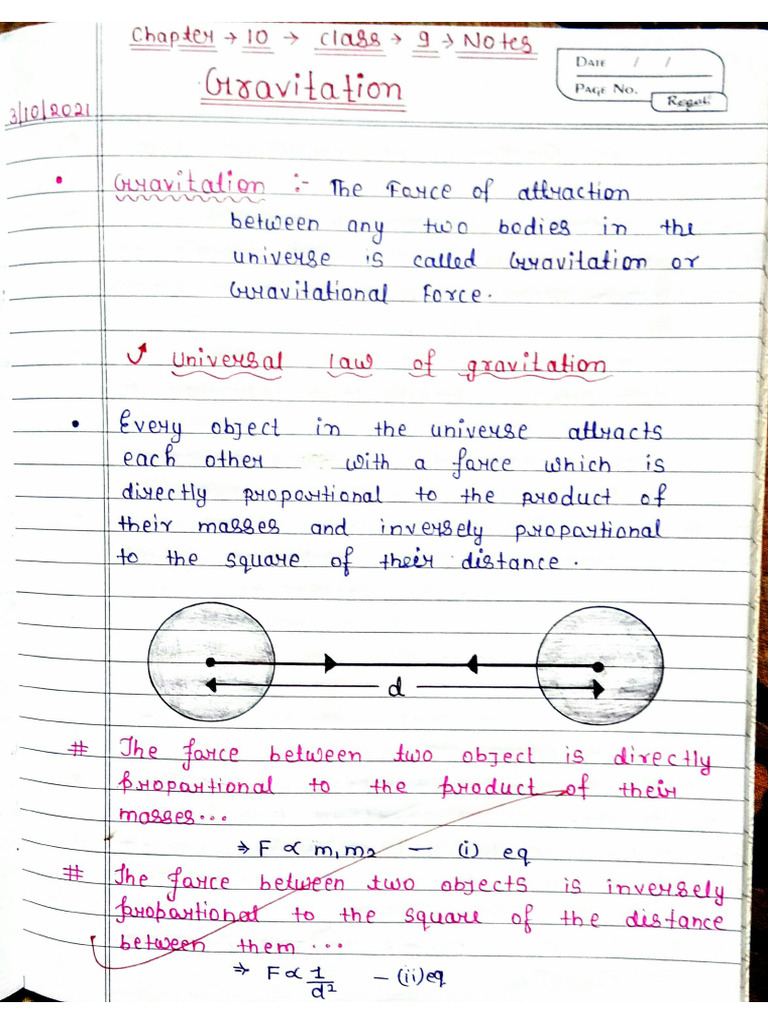 Chapter → 10 → Class → 9 → Notes
Gravitation
DATE / /
PAGE No.
Regal
3/10/2021
• Gravitation :- The Force of attraction
between any two bodies in the
universe is called Gravitation or
Gravitational Force.
Universal law of gravitation
• Every object in the universe attracts
each other with a force which is
directly proportional to the product of
their masses and inversely proportional
to the square of their distance.
d
# The force between two object is directly
proportional to the product of their
masses...
⇒ F ∝ m₁m₂ — (i) eq
# The force between two objects is inversely
proportional to the square of the distance
between them ...
⇒ F ∝ 1/d² — (ii) eq